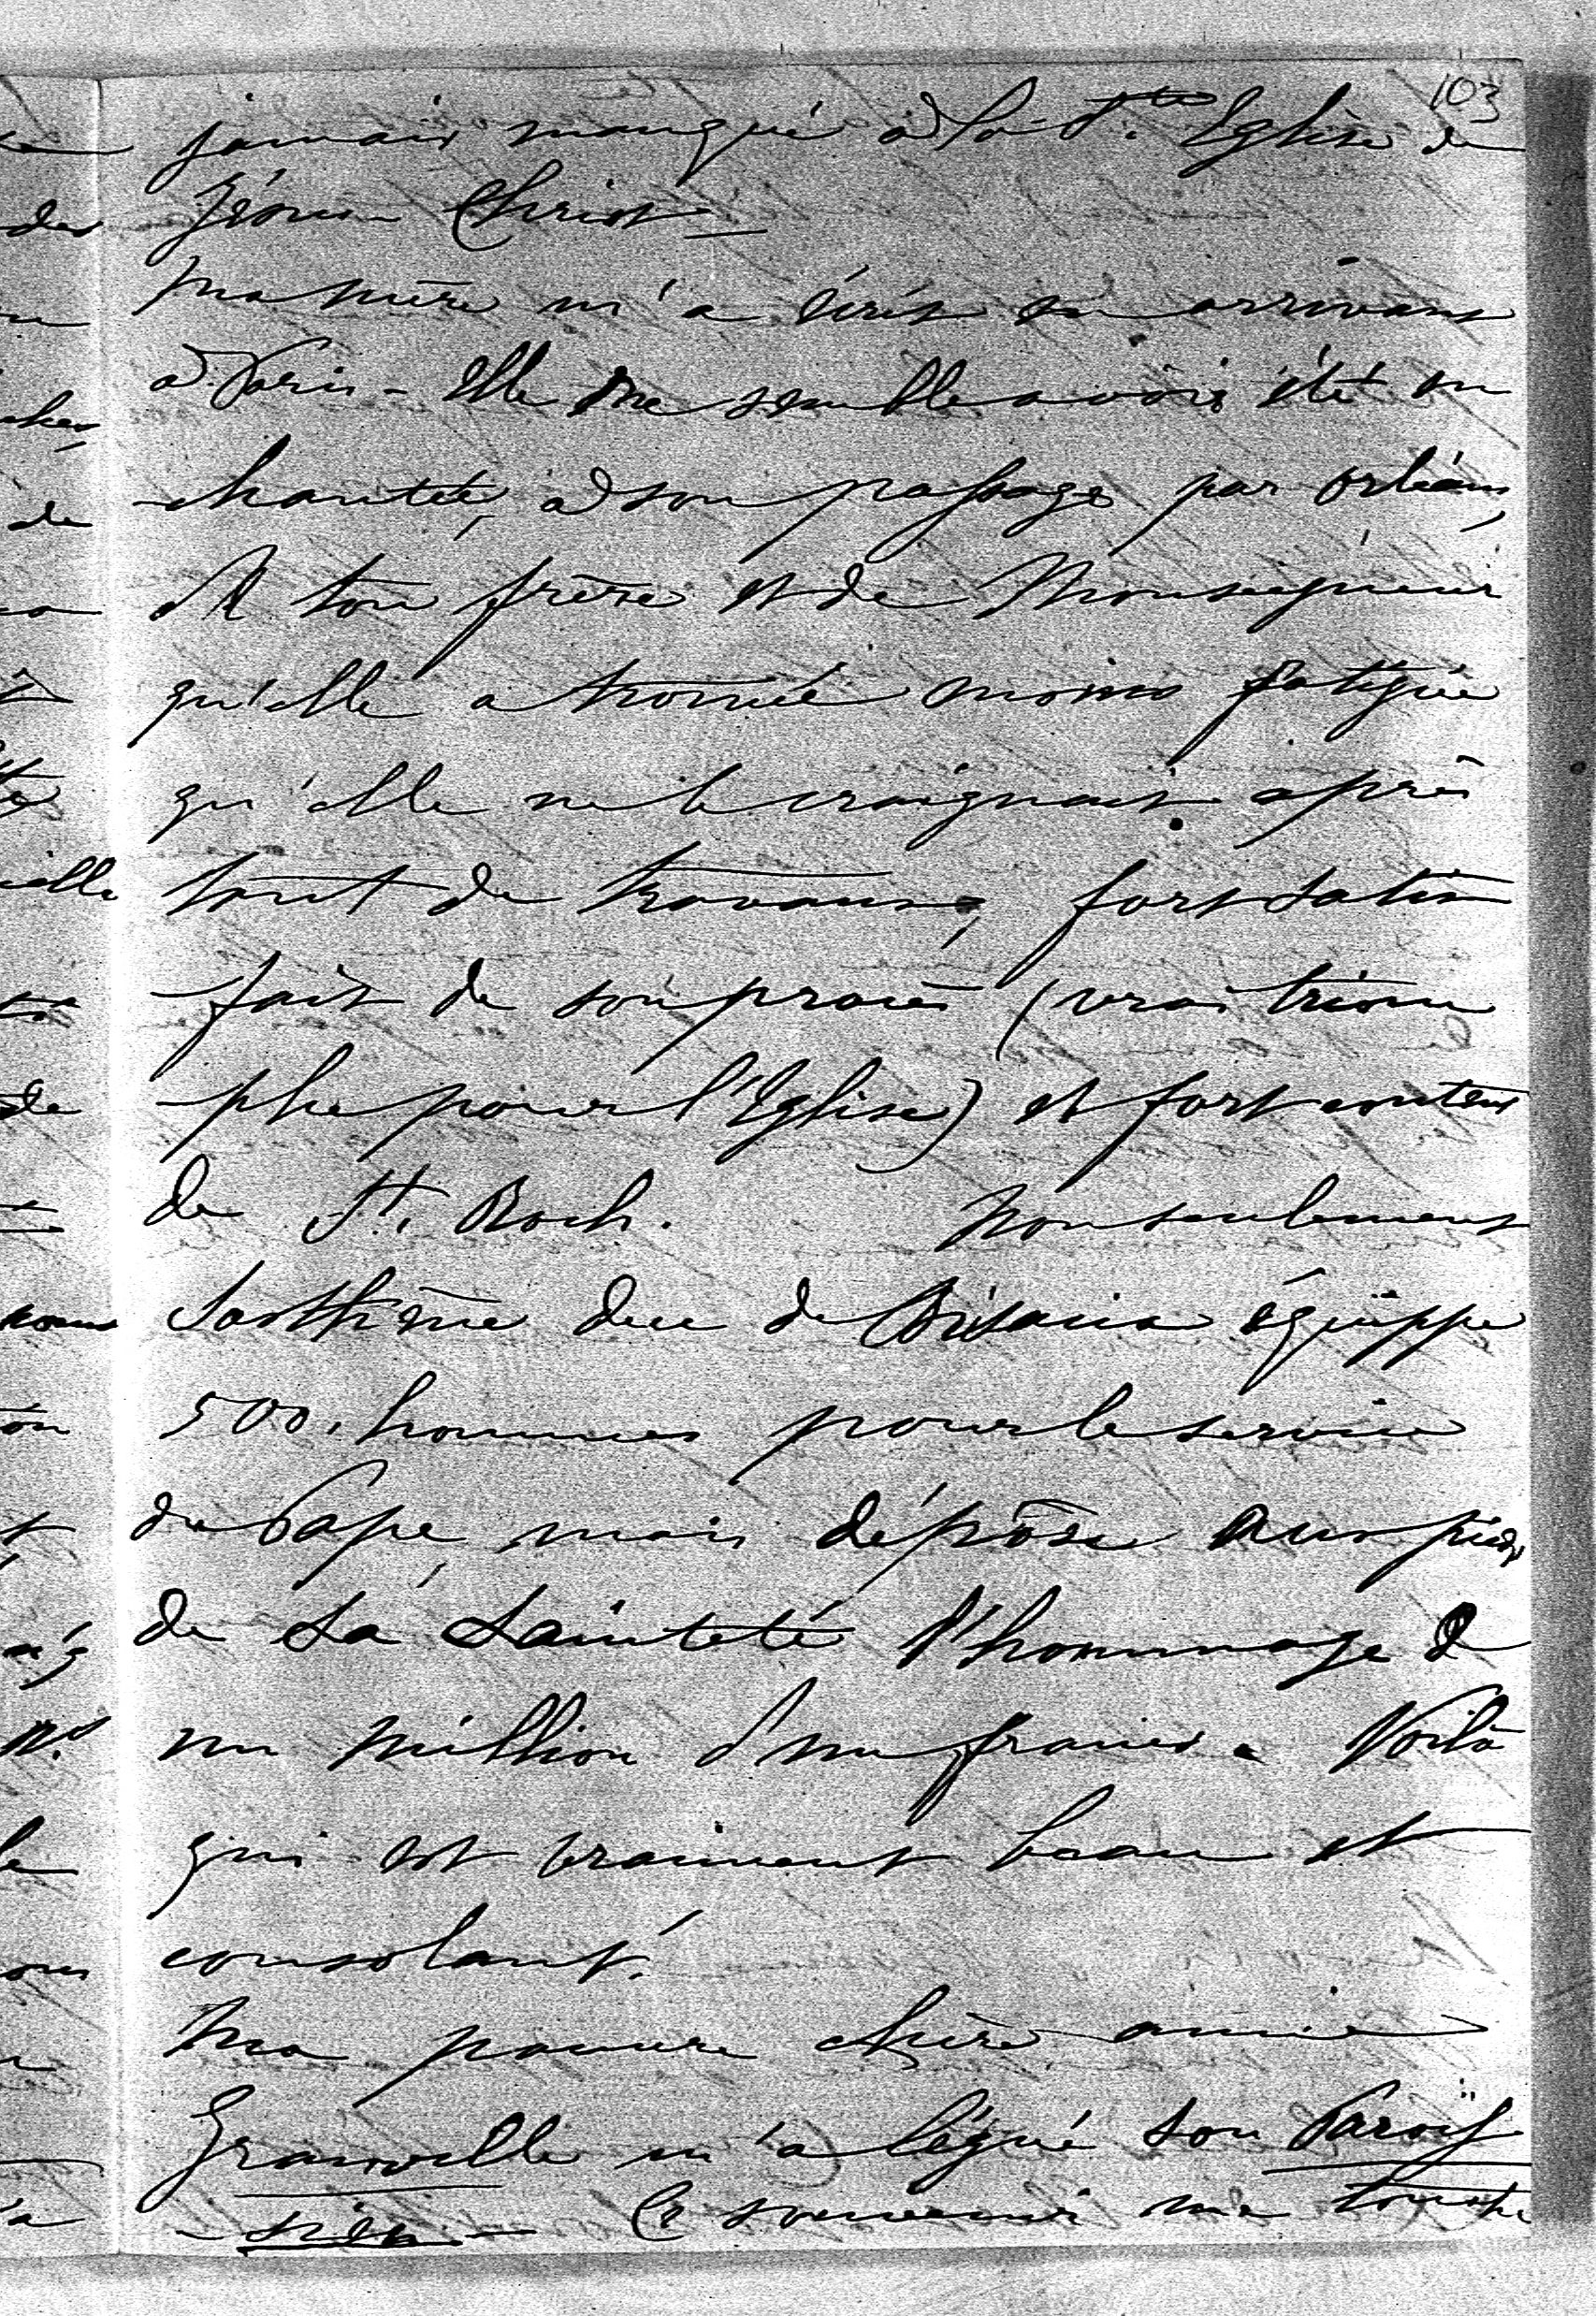 103
jamais manqué à la Ste. Eglise de
Jésus Christ —
Ma mère m'a écrit en arrivant
à Paris - Elle me semble avoir été en
chantée, à son passage par Orléans,
de ton frère et de Monseigneur
qu'elle a trouvé moins fatigué
qu'elle ne le craignait après
tant de travaux, fort satis
fait de son procès (vrai triom
phe pour l'Eglise) et fort content
de St. Roch. Non seulement
Sosthène duc de Bisaccia équippe
500. hommes pour le service
du Pape, mais dépôse aux pieds
de Sa Sainteté l'hommage d
un million d'un francs. Voilà
qui est vraiment beau et
consolant.
Ma pauvre chère amie
Grainville m'a légué son Paroiſ
sien — Ce souvenir me touche